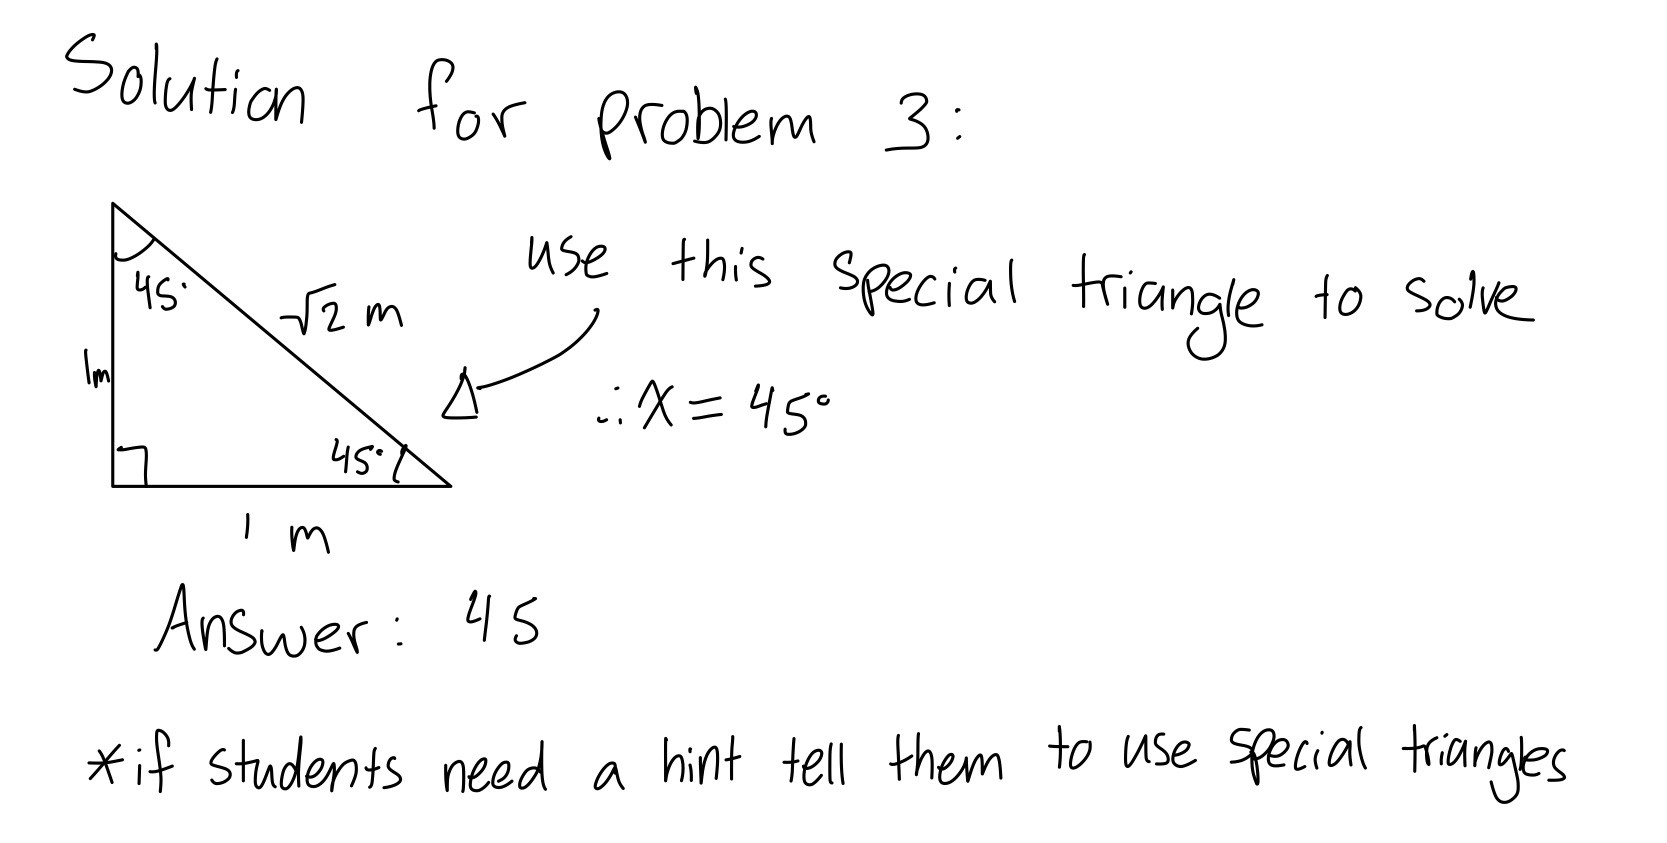 Solution for problem 3:
use this special triangle to solve
45°
√2 m
1m
Δ
∴ x = 45°
45°
1 m
Answer: 45
*if students need a hint tell them to use special triangles